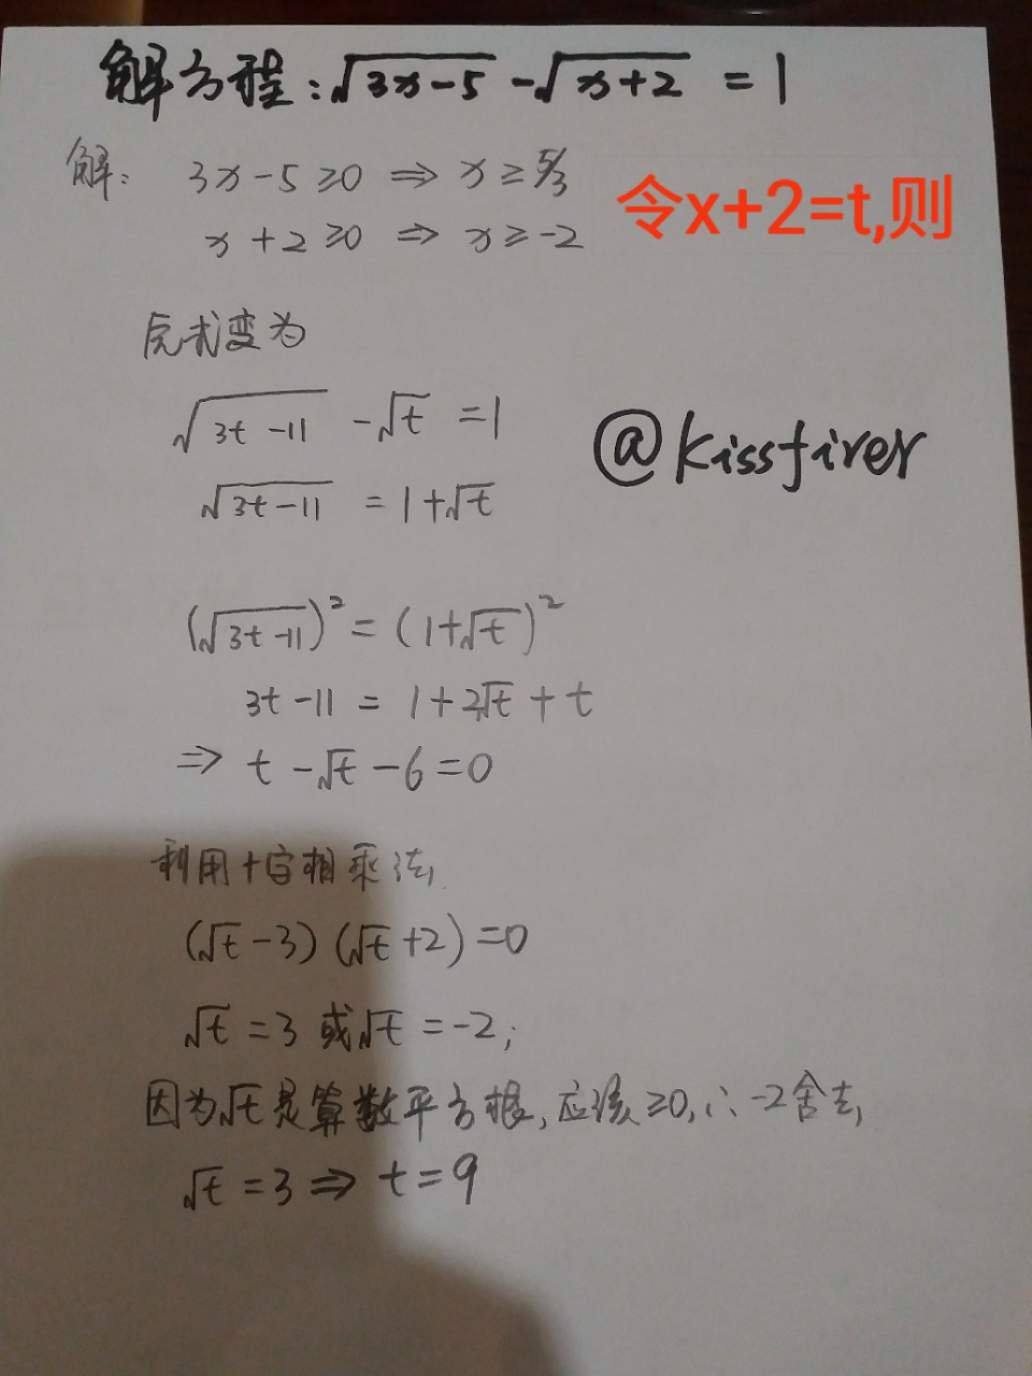 解方程:√(3x-5) -√(x+2) = 1
解: 3x-5≥0 ⇒ x≥5/3
x+2≥0 ⇒ x≥-2
令x+2=t,则
原式变为
√(3t-11) -√t =1
@kissfirer
√(3t-11) = 1+√t
(√(3t-11))² = (1+√t)²
3t-11 = 1+2√t+t
⇒ t-√t-6=0
利用十字相乘法,
(√t-3)(√t+2)=0
√t=3或√t=-2;
因为√t是算数平方根,应该≥0,∴-2舍去,
√t=3⇒t=9